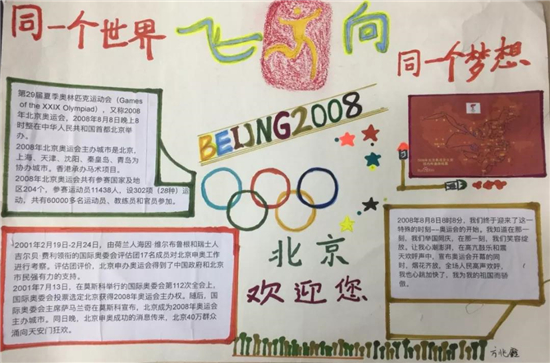 同一个世界
飞向
同一个梦想
第29届夏季奥林匹克运动会（Games
of the XXIX Olympiad），又称2008
年北京奥运会，2008年8月8日晚上8
时整在中华人民共和国首都北京举
办。
2008年北京奥运会主办城市是北京，
上海、天津、沈阳、秦皇岛、青岛为
协办城市。香港承办马术项目。
2008年北京奥运会共有参赛国家及地
区204个，参赛运动员11438人，设302项（28种）运
动，共有60000多名运动员、教练员和官员参加。
BEIJING2008
2001年2月19日-2月24日，由荷兰人海因·维尔布鲁根和瑞士人
吉尔贝·费利领衔的国际奥委会评估团17名成员对北京申奥工作
进行考察。评估团评价，北京申办奥运会得到了中国政府和北京
市民强有力的支持。
2001年7月13日，在莫斯科举行的国际奥委会第112次全会上，
国际奥委会投票选定北京获得2008年奥运会主办权。随后，国
际奥委会主席萨马兰奇在莫斯科宣布，北京成为2008年奥运会
主办城市。同日晚，北京申奥成功的消息传来，北京40万群众
涌向天安门狂欢。
北京
欢迎您
2008年8月8日8时8分，我们终于迎来了这一
特殊的时刻—奥运会的开始。我知道在那一
刻，我们举国同庆，在那一刻，我们笑容绽
放，让我心潮澎湃，在高亢鼓乐和震
天欢呼声中，宣布奥运会开幕的同
时，烟花齐放，全场人民高声欢呼，
我也心跳加快了，我为我的祖国而骄
傲。